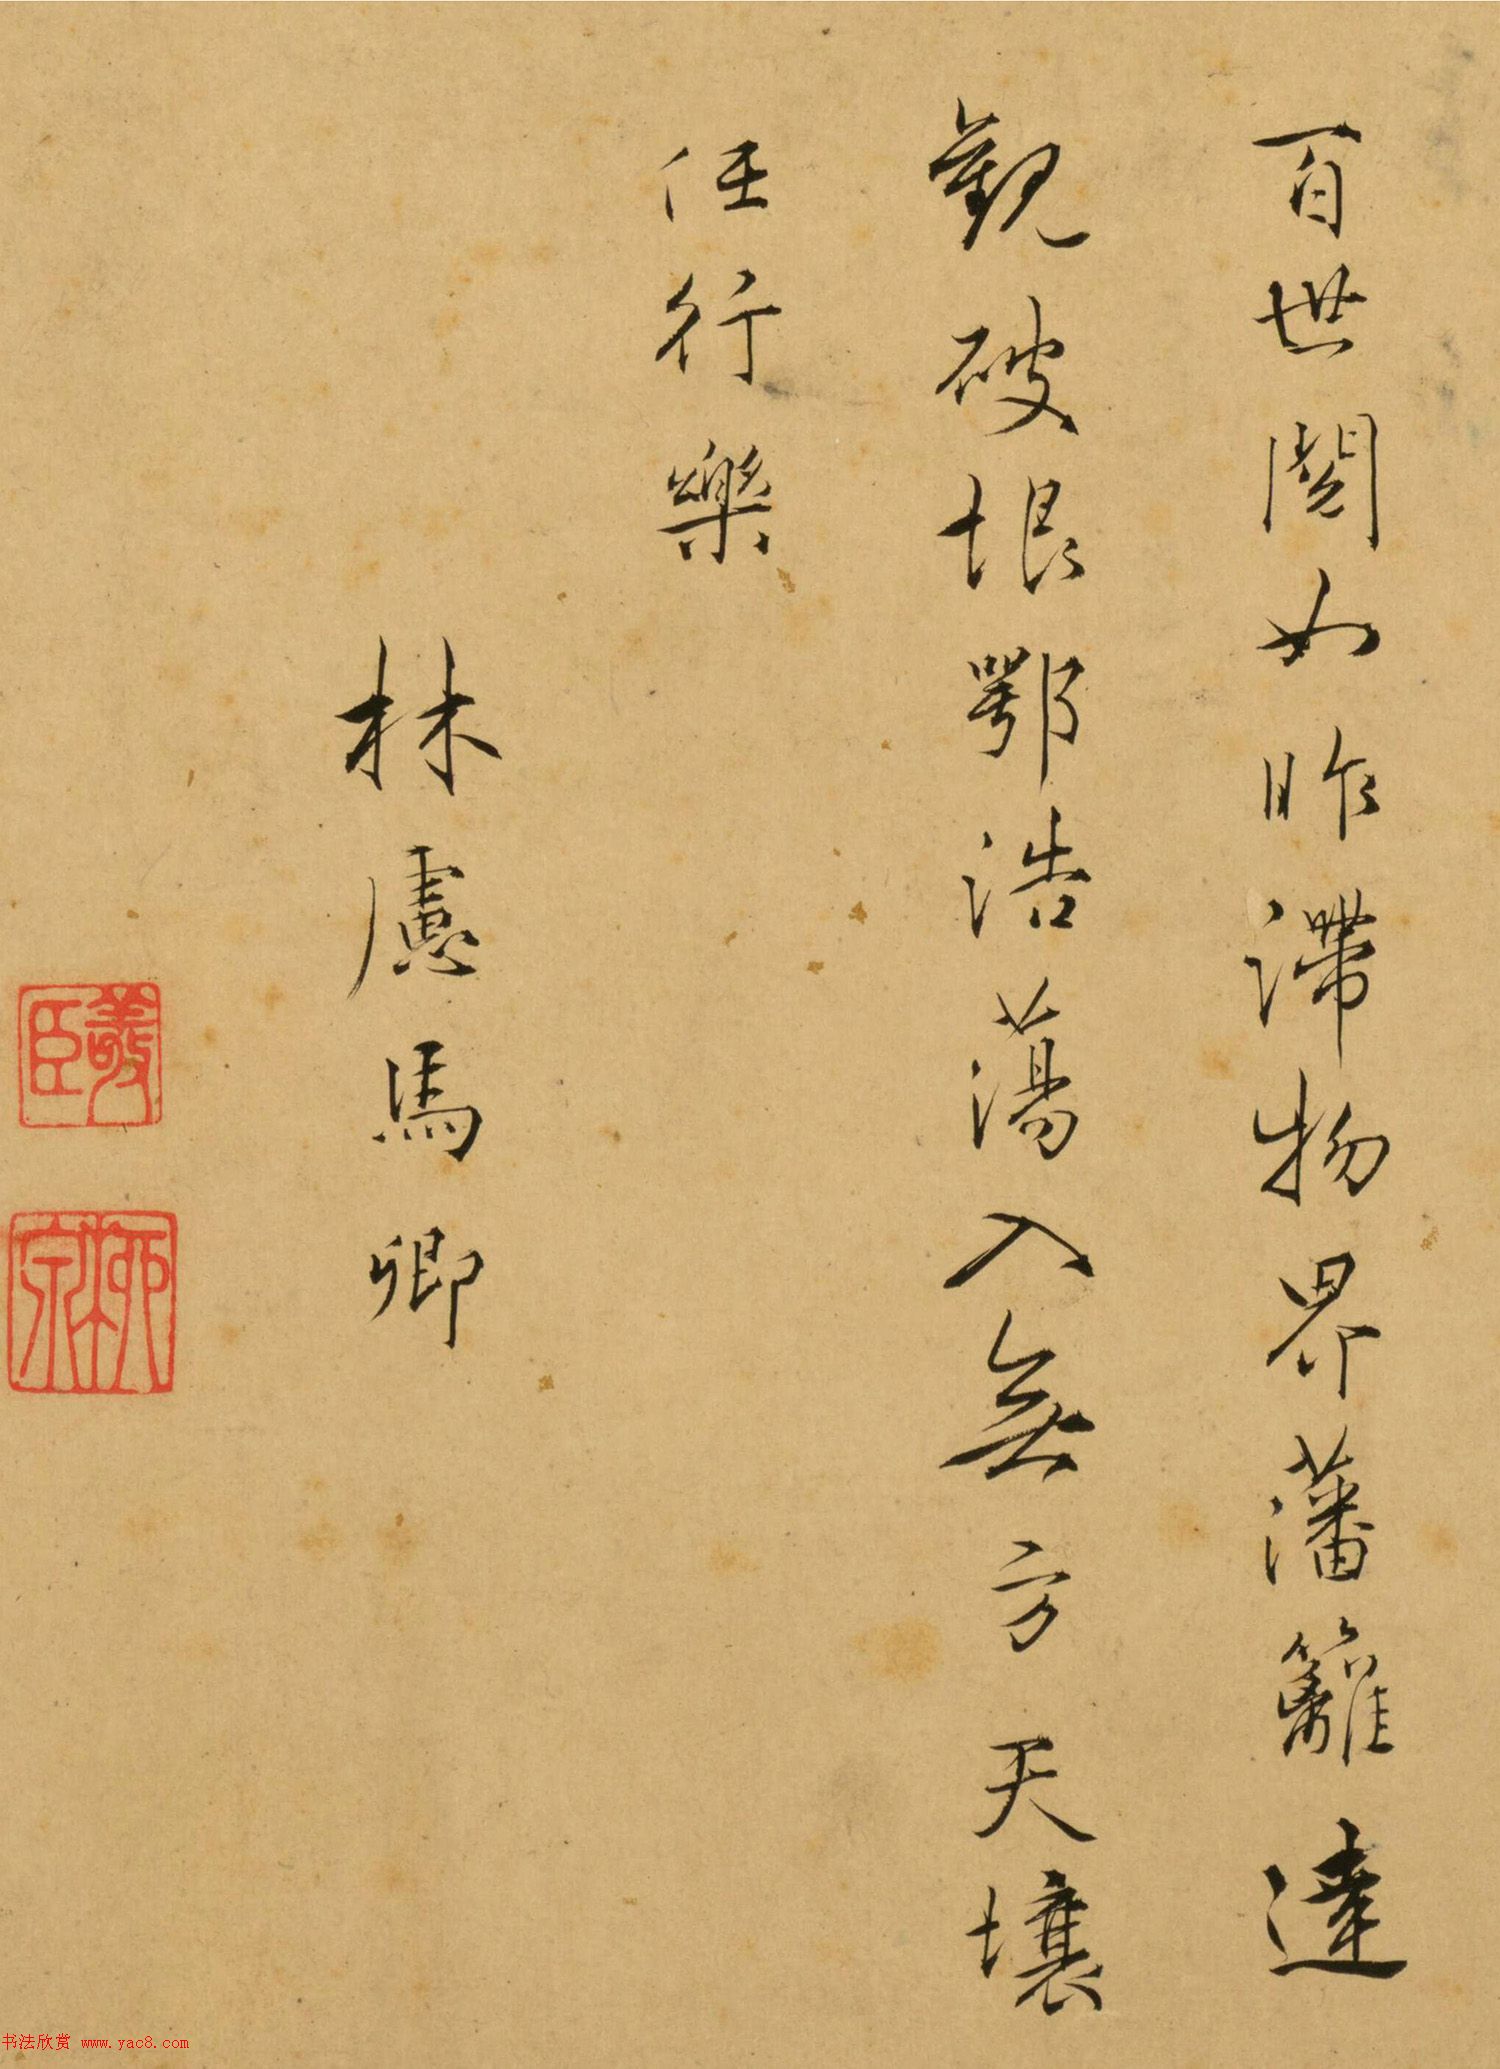 百世闊如昨滯物界藩籬達
觀破垠鄂浩蕩入無方天壤
任行樂
林慮馬卿
敬臣
柳宗
书法欣赏 www.yac8.com